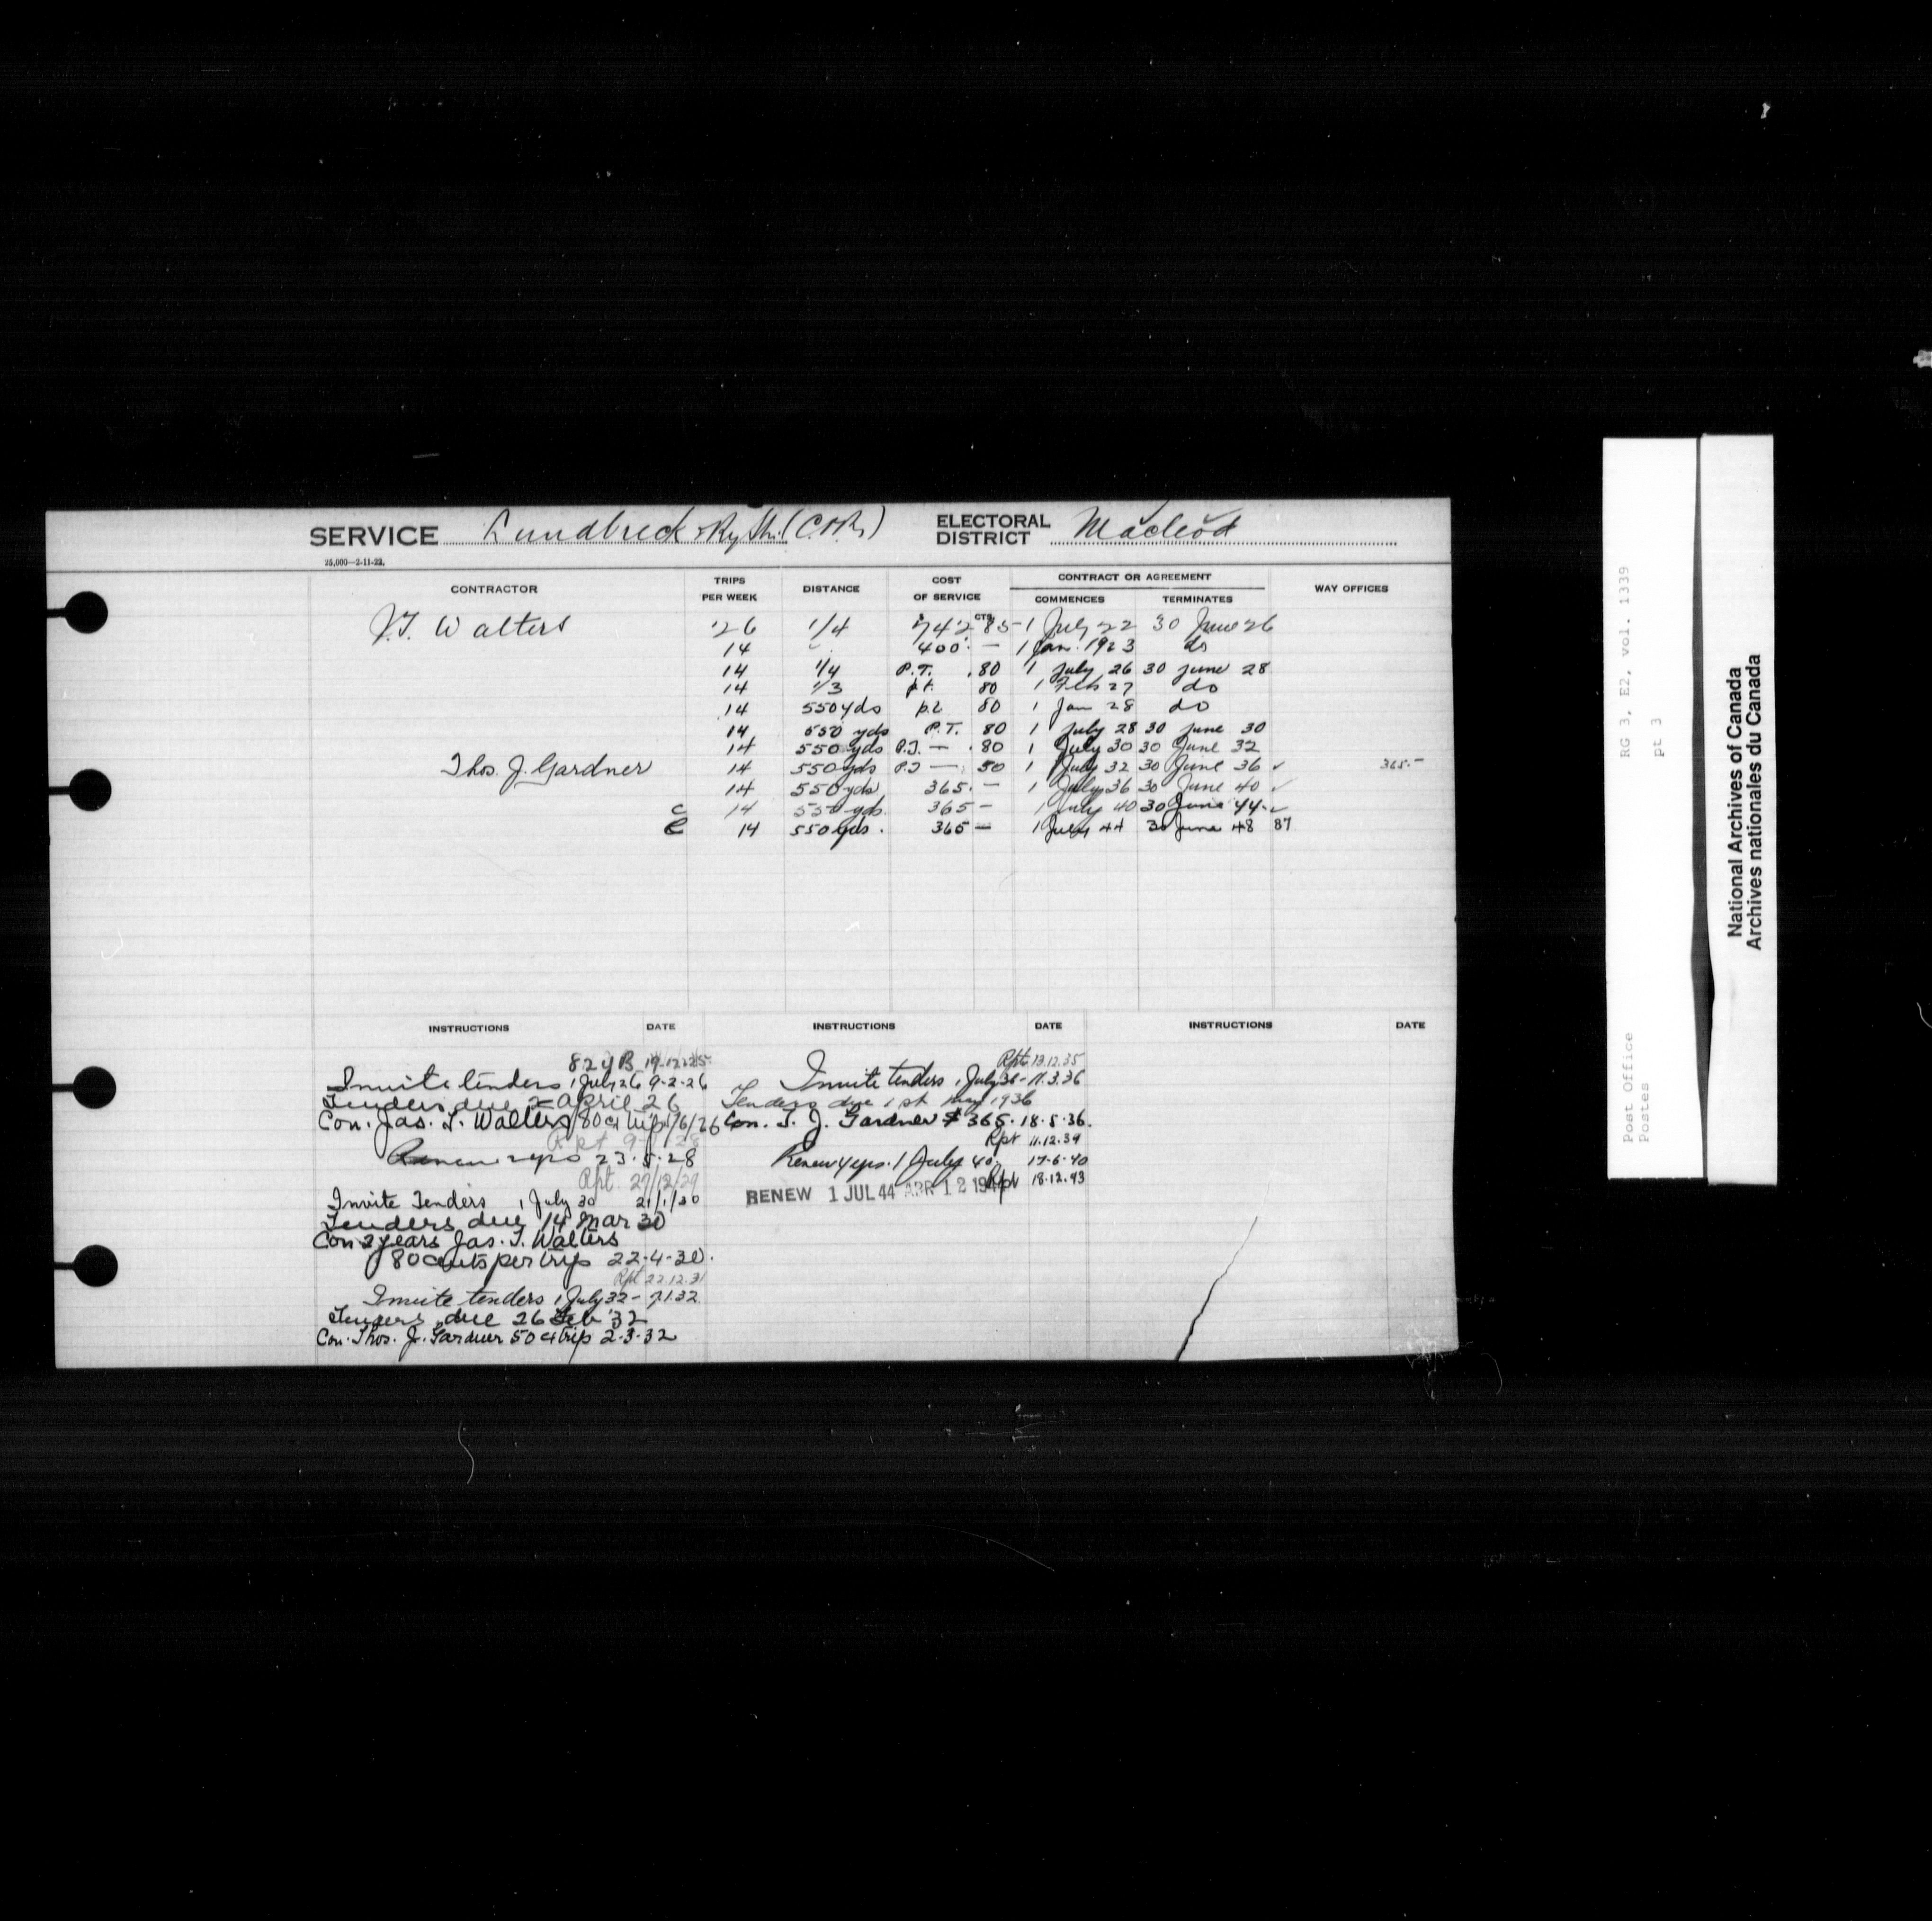 SERVICE Lundbreck & Ry Stn. (C.P.R.) ELECTORAL DISTRICT Macleod
25,000—2-11-22.
CONTRACTOR TRIPS PER WEEK DISTANCE COST OF SERVICE CONTRACT OR AGREEMENT COMMENCES TERMINATES WAY OFFICES
$ CTS
J.T. Walters 26 1/4 742 85 1 July 22 30 June 26
14 400. — 1 Jan. 1923 do
14 1/4 P.T. .80 1 July 26 30 June 28
14 1/3 p.t. 80 1 Feb 27 do
14 550 yds p.t. 80 1 Jan 28 do
14 550 yds P.T. 80 1 July 28 30 June 30
14 550 yds P.T. — .80 1 July 30 30 June 32
Thos. J. Gardner 14 550 yds P.T — 50 1 July 32 30 June 36 ✓ 365.—
14 550 yds 365. — 1 July 36 30 June 40 ✓
C 14 550 yds. 365 — 1 July 40 30 June 44 ✓
C 14 550 yds. 365 — 1 July 44 30 June 48 87
INSTRUCTIONS DATE
824 B 19.12.25
Invite tenders 1 July 26 9-2-26
Tenders due April 26
Con. Jas. T. Walters 80 c trip 1/6/26
Rpt 9-1/28
Renew 2 yrs 23.5.28
Rpt. 27/12/29
Invite Tenders 1 July 30 21/1/30
Tenders due 14 Mar 30
Con 2 years Jas. T. Walters
80 cents per trip 22-4-30.
Rpt 22.12.31
Invite tenders 1 July 32 - 7.1.32
Tenders due 26 Feb '32
Con. Thos. J. Gardner 50 c trip 2-3-32
INSTRUCTIONS DATE
Rpt 13.12.35
Invite tenders 1 July 36 - 11.3.36
Tenders due 1st May 1936
Con. T. J. Gardner $365. 18.5.36.
Rpt 11.12.39
Renew 4 yrs. 1 July 40. 17-6-40
Rpt 18.12.43
RENEW 1 JUL 44 APR 12 1944
INSTRUCTIONS DATE
RG 3, E2, vol. 1339
pt 3
Post Office
Postes
National Archives of Canada
Archives nationales du Canada